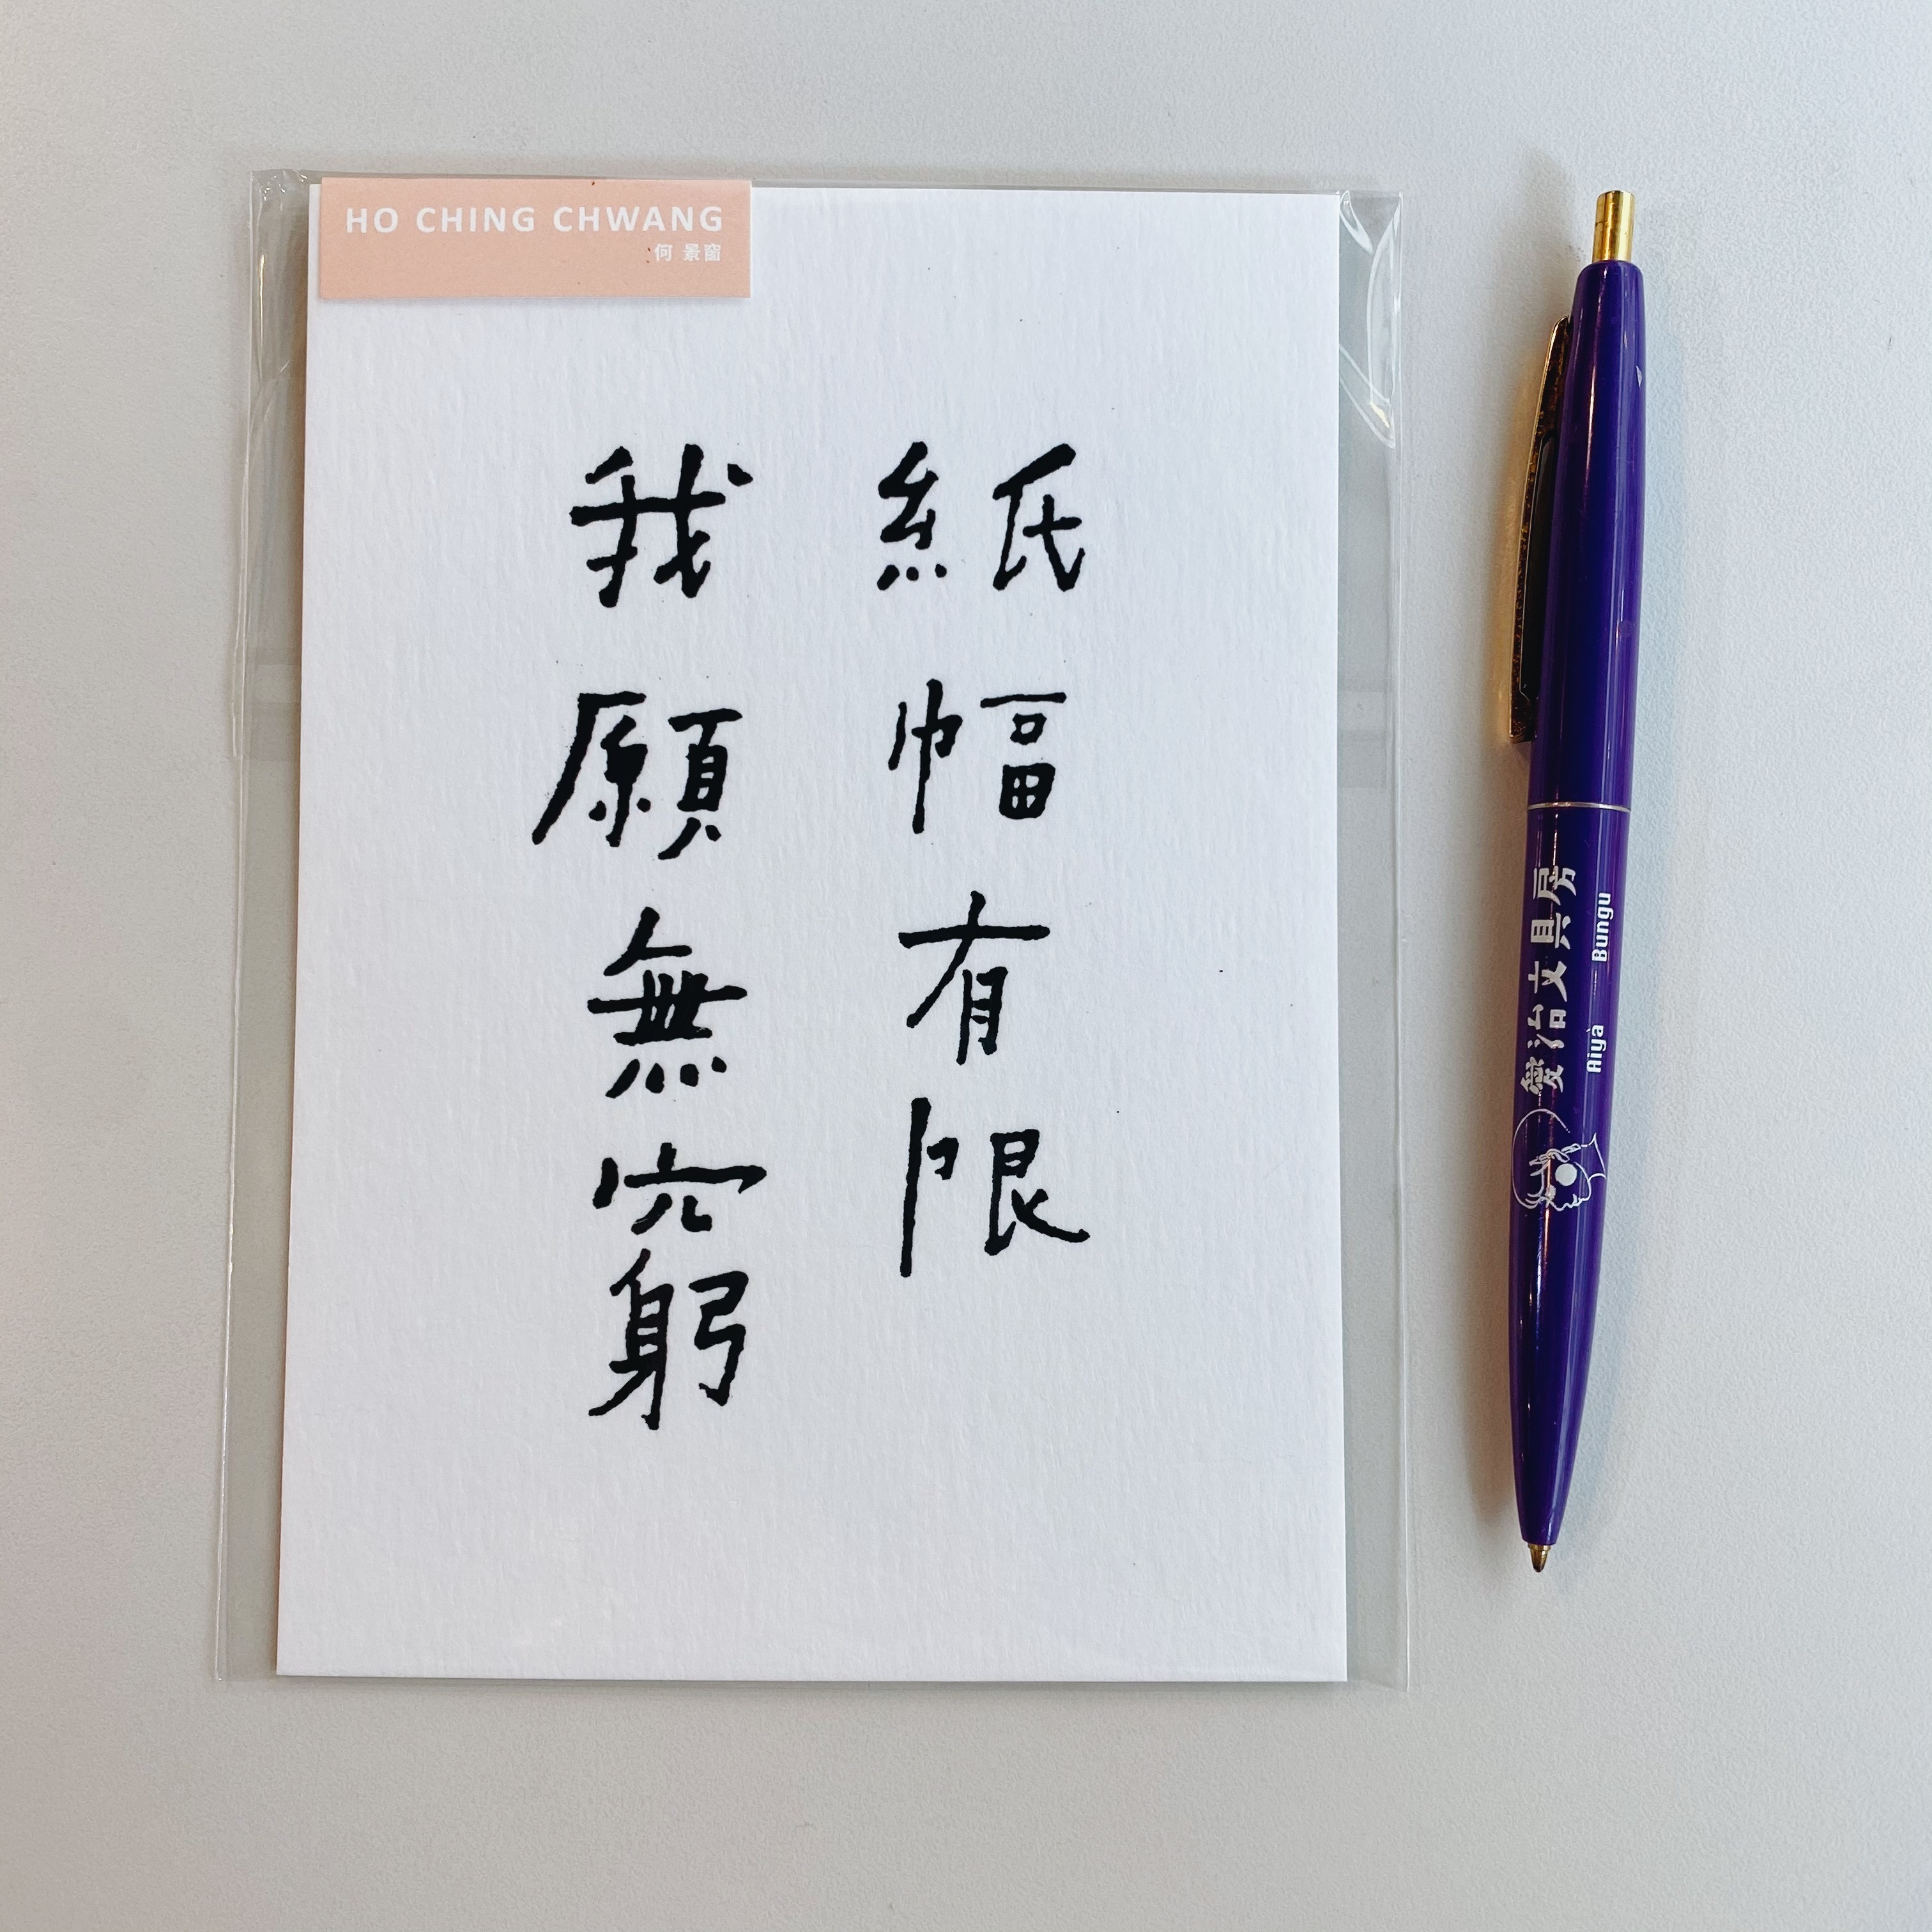 HO CHING CHWANG
何 景窗
紙幅有限
我願無窮
愛治文具房
Aiyà Bungu